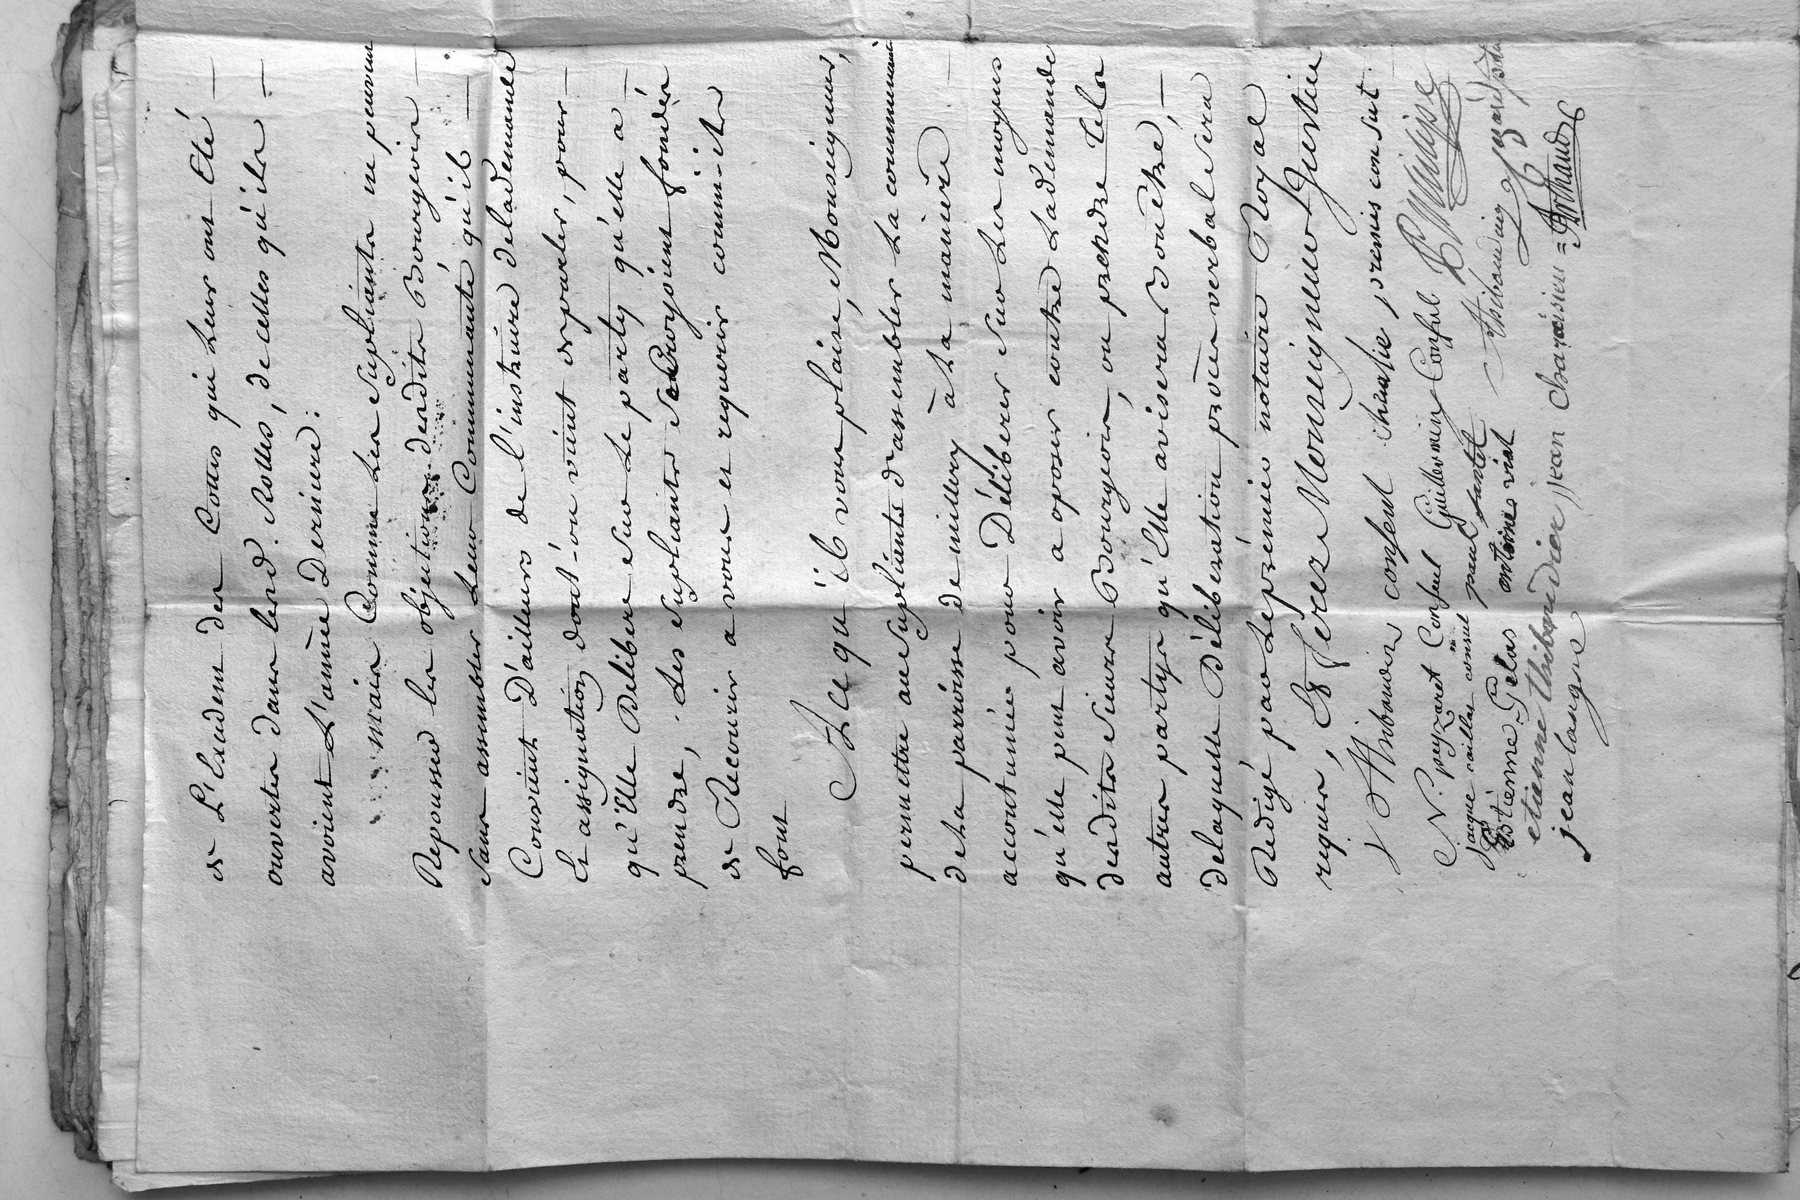 de L'Excedent des Cottes qui Leur ont Eté
ouvertes dans lesd. Rolles, de celles qu'ils
avoient L'année Derniere:
Mais Comme Les Supliants ne peuvent
Repousser les objections desdits Bourgeois
Sans assembler Leur Communauté qu'il
Convient D'ailleurs de l'instruire de la demande
Et assignation dont-on vient de parler, pour
qu'Elle Delibere sur Le party qu'elle a
prendre, Les Supliants Se Croyoient fondés
de Recourir a vous et requerir comme-ils
font
A Ce qu'il vous plaise, Monseigneur,
permettre aux Supliants d'assembler La communauté
de La parroisse de millery à La maniere
accoutumée pour Déliberer Sur Les moyens
qu'elle peut avoir a oposer contre La demande
desdits Sieurs Bourgeois, ou prendre tels
autres partys qu'Elle avisera Bon être,
de laquelle Déliberation procès verbal Sera
Redigé par Le premier notaire Royal
requis, Et Ferez Monseigneur Justice
Thibaudier consul chassie, premier consul
N. peyzaret Consul Guillermin Consul Philipe
jaque caillas consul paul jantet Thibaudier
Estienne Gelas antoine vial
etienne thibaudier jean charoisieu = Arthaud
jean langue